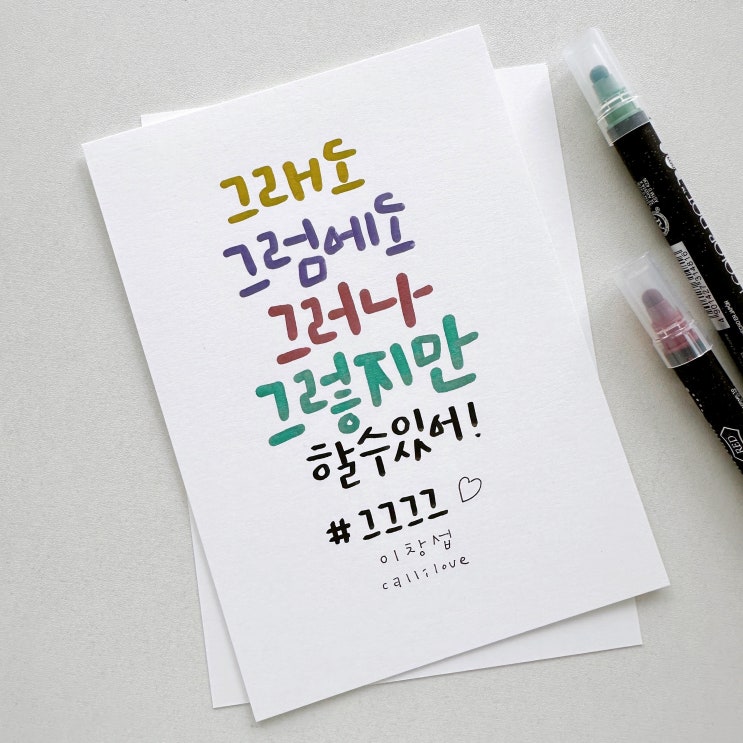 그래도
그럼에도
그러나
그렇지만
할수있어!
#그그그그 ♡
이창섭
callilove
RED